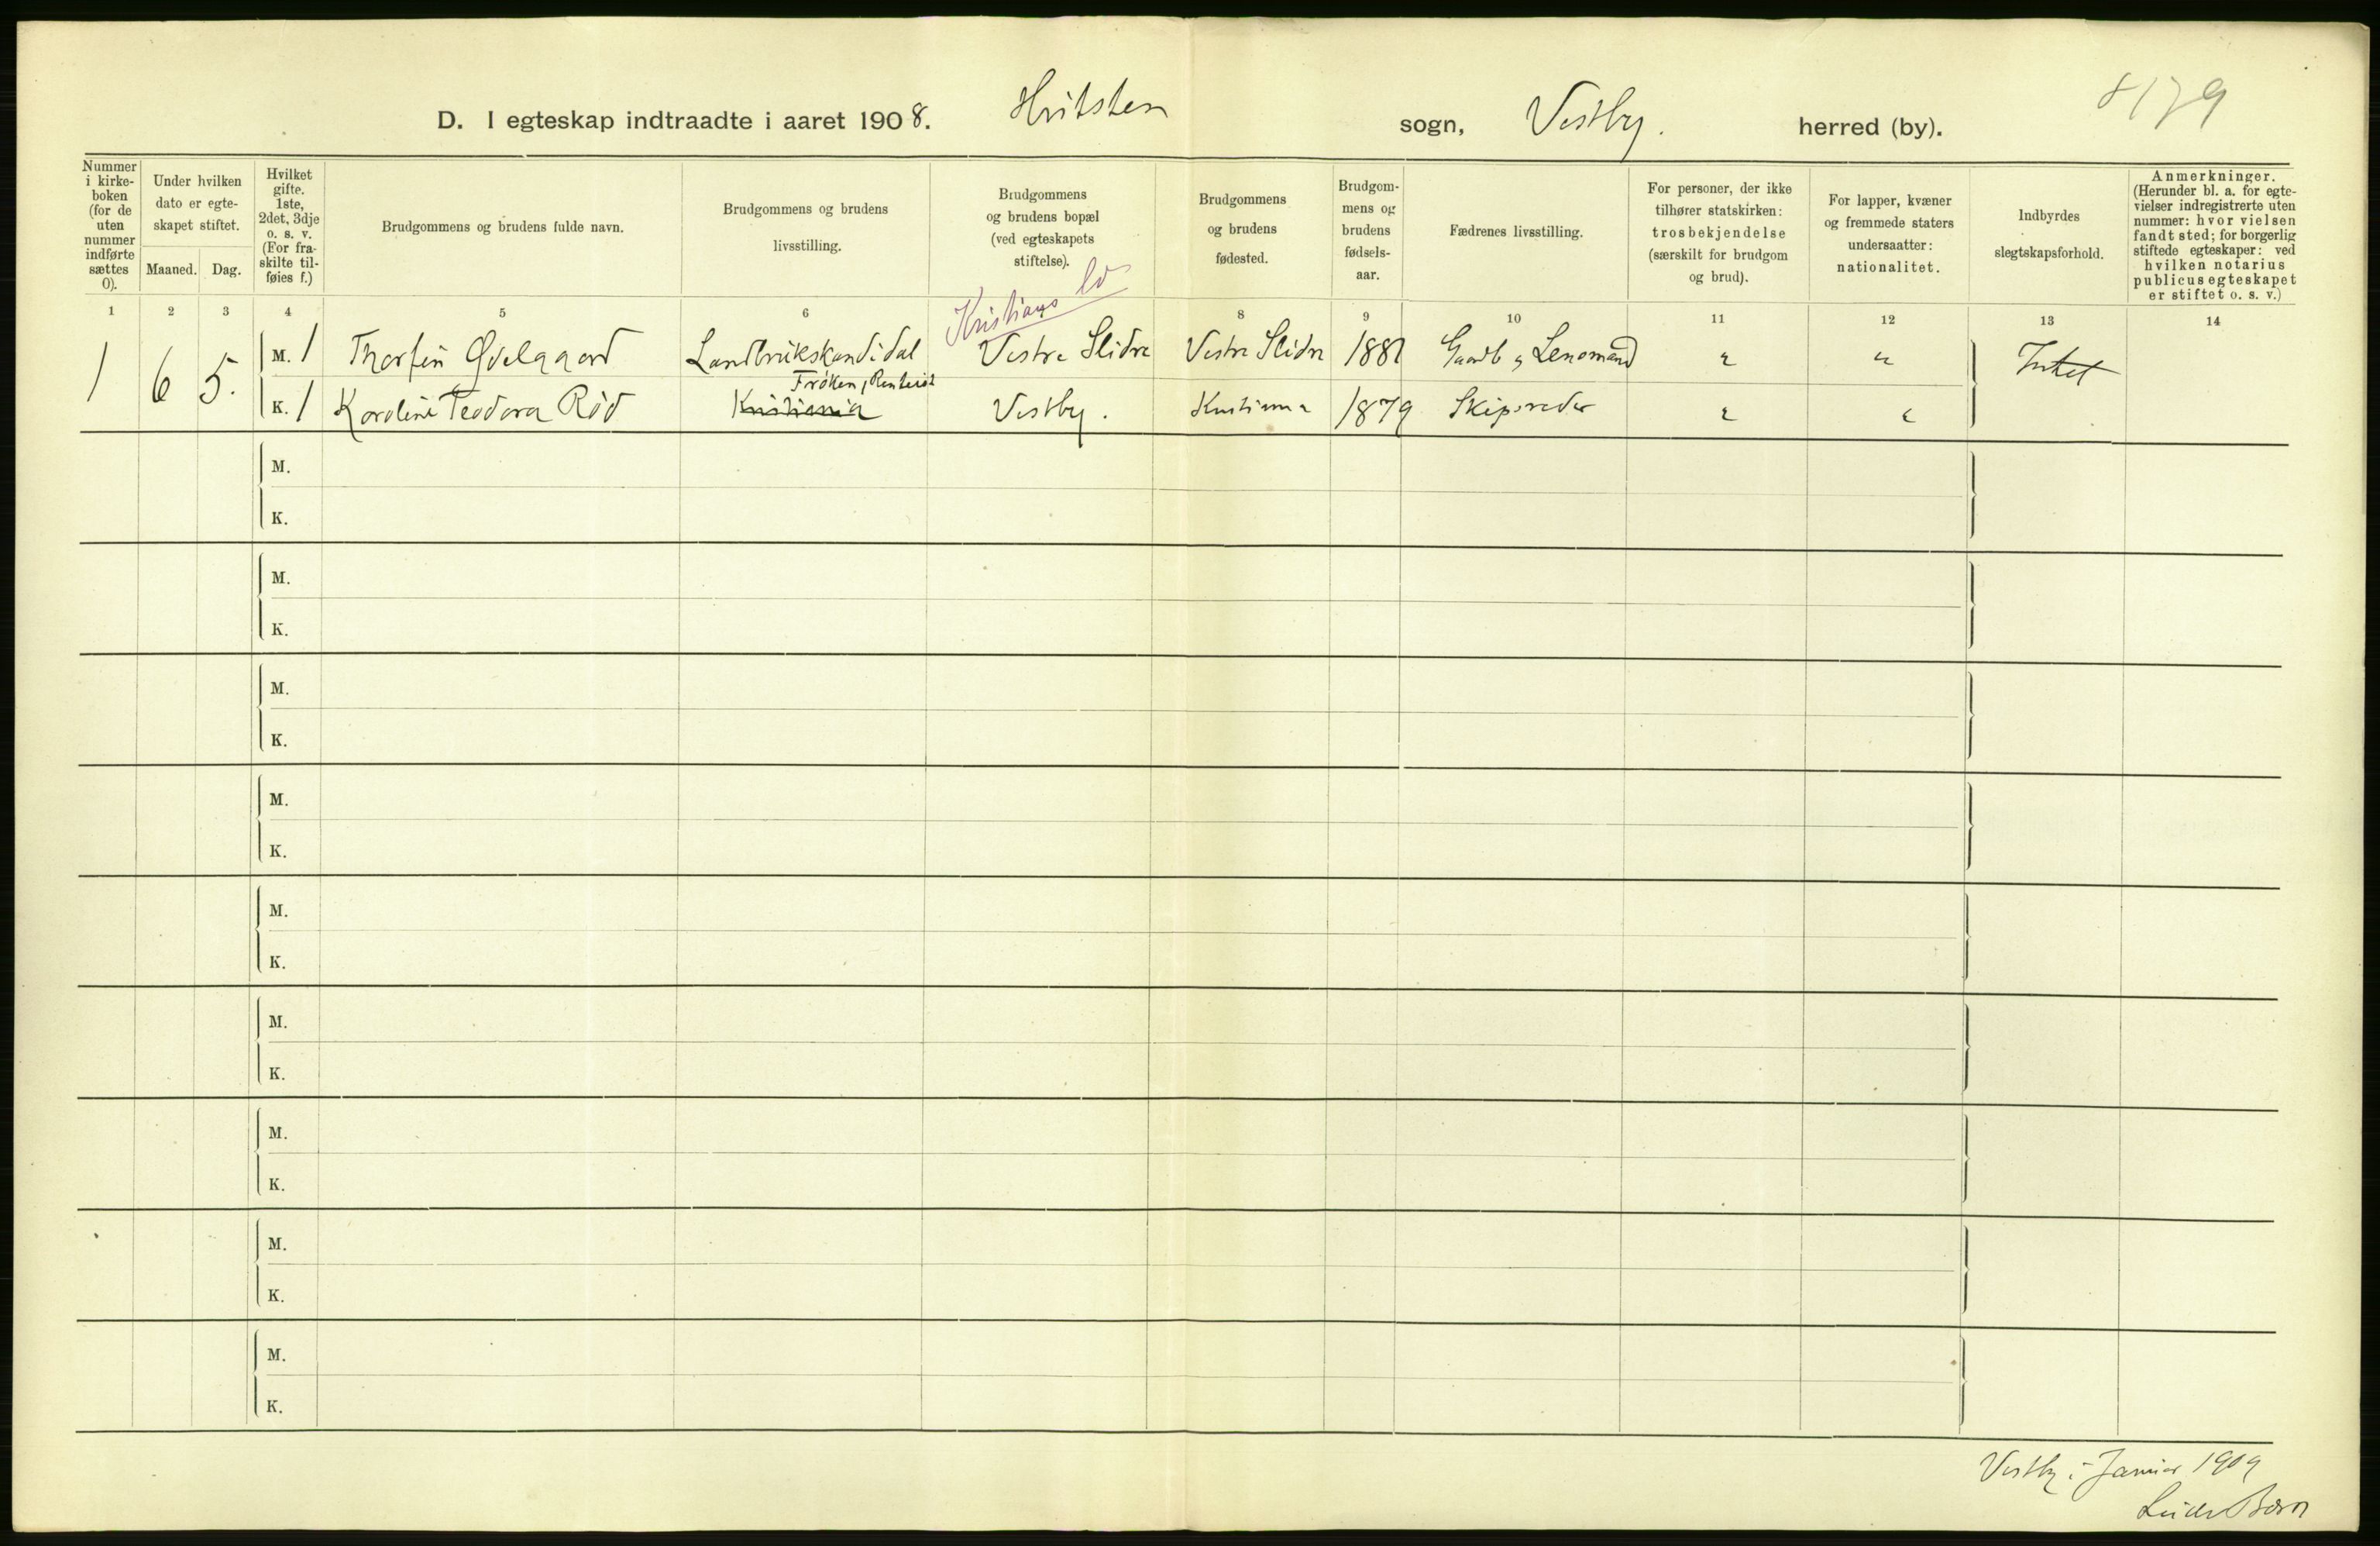 8179
D. I egteskap indtraadte i aaret 1908. Hvitsten sogn, Vestby. herred (by).
Nummer i kirke-boken (for de uten nummer indførte sættes 0).
Under hvilken dato er egte-skapet stiftet.
Maaned. Dag.
Hvilket gifte. 1ste, 2det, 3dje o. s. v. (For fra-skilte til-føies f.)
Brudgommens og brudens fulde navn.
Brudgommens og brudens livsstilling.
Brudgommens og brudens bopæl (ved egteskapets stiftelse).
Brudgommens og brudens fødested.
Brudgom-mens og brudens fødsels-aar.
Fædrenes livsstilling.
For personer, der ikke tilhører statskirken: trosbekjendelse (særskilt for brudgom og brud).
For lapper, kvæner og fremmede staters undersaatter: nationalitet.
Indbyrdes slegtskapsforhold.
Anmerkninger. (Herunder bl. a. for egte-vielser indregistrerte uten nummer: hvor vielsen fandt sted; for borgerlig stiftede egteskaper: ved hvilken notarius publicus egteskapet er stiftet o. s. v.)
1 2 3 4 5 6 8 9 10 11 12 13 14
Kristians
1 6 5. M. 1 Thorfin Ødelgaard Landbrukskandidat Vestre Slidre Vestre Slidre 1881 Gaardb og Lensmand " " Intet
Frøken, Rentenist
K. 1 Karoline Teodora Rød Kristiania Vestby. Kristiania 1879 Skipsreder " "
M.
K.
M.
K.
M.
K.
M.
K.
M.
K.
M.
K.
M.
K.
M.
K.
M.
K.
Vestby i Januar 1909